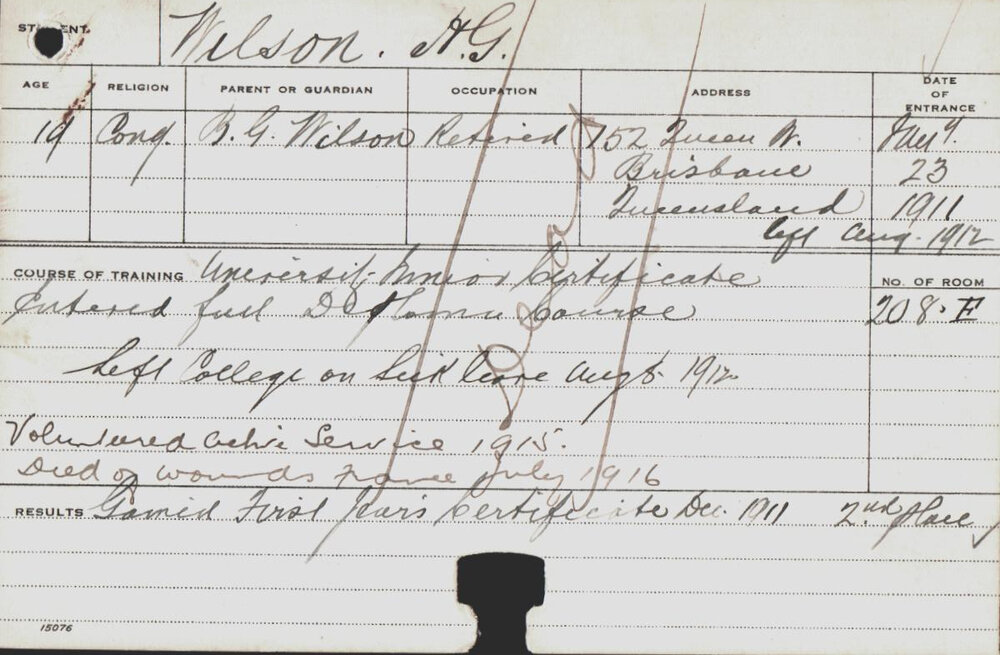 STUDENT Wilson. H.G.
AGE RELIGION PARENT OR GUARDIAN OCCUPATION ADDRESS DATE OF ENTRANCE
19 Cong. B.G. Wilson Retired 752 Queen St. Jany.
Brisbane 23
Queensland 1911
left Aug. 1912
COURSE OF TRAINING University Junior Certificate NO. OF ROOM
Entered full Diploma Course 208. E
Left College on Sick leave Aug 8 1912
Volunteered active Service 1915.
Died of wounds France July 1916
Dead
RESULTS Gained First Years Certificate Dec. 1911 2nd place
15076